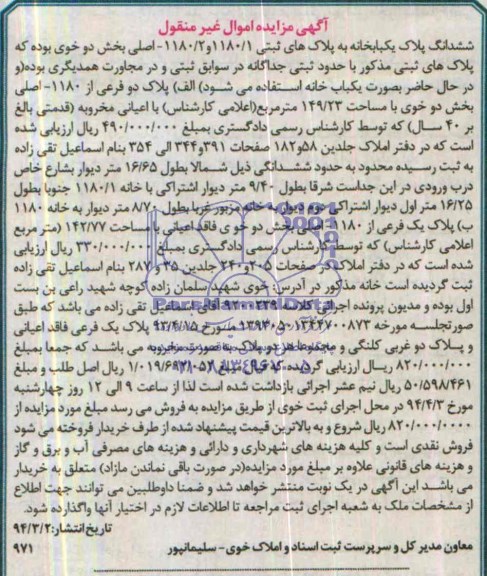 آگهی مزایده اموال غیر منقول
ششدانگ پلاک یکبابخانه به پلاک های ثبتی ۱۱۸۰/۱و۱۱۸۰/۲-اصلی بخش دو خوی بوده که
پلاک های ثبتی مذکور با حدود ثبتی جداگانه در سوابق ثبتی و در مجاورت همدیگری بوده(و
در حال حاضر بصورت یکباب خانه استفاده می شود) الف) پلاک دو فرعی از ۱۱۸۰-اصلی
بخش دو خوی با مساحت ۱۴۹/۲۳ مترمربع(اعلامی کارشناس) با اعیانی مخروبه (قدمتی بالغ
بر ۴۰ سال) که توسط کارشناس رسمی دادگستری بمبلغ ۴۹۰/۰۰۰/۰۰۰ ریال ارزیابی شده
است که در دفتر املاک جلدین ۵۸و۱۸۲ صفحات ۳۹۱و۳۴۴ الی ۳۵۴ بنام اسماعیل تقی زاده
به ثبت رسیده محدود به حدود ششدانگی ذیل شمالا بطول ۱۶/۶۵ متر دیوار بشارع خاص
درب ورودی در این جداست شرقا بطول ۹/۴۰ متر دیوار اشتراکی با خانه ۱۱۸۰/۱ جنوبا بطول
۱۶/۲۵ متر اول دیوار اشتراکی دوم دیوار به خانه مزبور غربا بطول ۸/۷۰ متر دیوار به خانه ۱۱۸۰
ب) پلاک یک فرعی از ۱۱۸۰ اصلی بخش دو خوی فاقد اعیانی با مساحت ۱۴۲/۷۷ (متر مربع
اعلامی کارشناس) که توسط کارشناس رسمی دادگستری بمبلغ ۳۳۰/۰۰۰/۰۰۰ ریال ارزیابی
شده است که در دفتر املاک در صفحات ۲۰۵و۲۴۰ جلدین ۳۵ و ۲۸۷ بنام اسماعیل تقی زاده
ثبت گردیده است خانه مذکور در آدرس: خوی شهید سلمان زاده کوچه شهید راعی بن بست
اول بوده و مدیون پرونده اجرائی کلاسه آقای اسماعیل تقی زاده می باشد که طبق
صورتجلسه مورخه مورخ ۹۳/۴/۸۵ پلاک یک فرعی فاقد اعیانی
و پلاک دو غربی کلنگی و مجموعا هر دو پلاک به صورت مخروبه می باشد که جمعا بمبلغ
۸۲۰/۰۰۰/۰۰۰ ریال ارزیابی گردیده که قبال مبلغ ریال اصل طلب و مبلغ
۵۰/۵۹۸/۴۶۱ ریال نیم عشر اجرائی بازداشت شده است لذا از ساعت ۹ الی ۱۲ روز چهارشنبه
مورخ ۹۴/۴/۳ در محل اجرای ثبت خوی از طریق مزایده به فروش می رسد مبلغ مورد مزایده از
۸۲۰/۰۰۰/۰۰۰ ریال شروع و به بالاترین قیمت پیشنهاد شده از طرف خریدار فروخته می شود
فروش نقدی است و کلیه هزینه های شهرداری و دارائی و هزینه های مصرفی آب و برق و گاز
و هزینه های قانونی علاوه بر مبلغ مورد مزایده(در صورت باقی نماندن مازاد) متعلق به خریدار
می باشد این آگهی در یک نوبت منتشر خواهد شد و ضمنا داوطلبین می توانند جهت اطلاع
از مشخصات ملک به شعبه اجرای ثبت مراجعه تا اطلاعات لازم در اختیار آنها واگذارده شود.
تاریخ انتشار: ۹۴/۳/۲
معاون مدیر کل و سرپرست ثبت اسناد و املاک خوی- سلیمانپور ۹۷۱